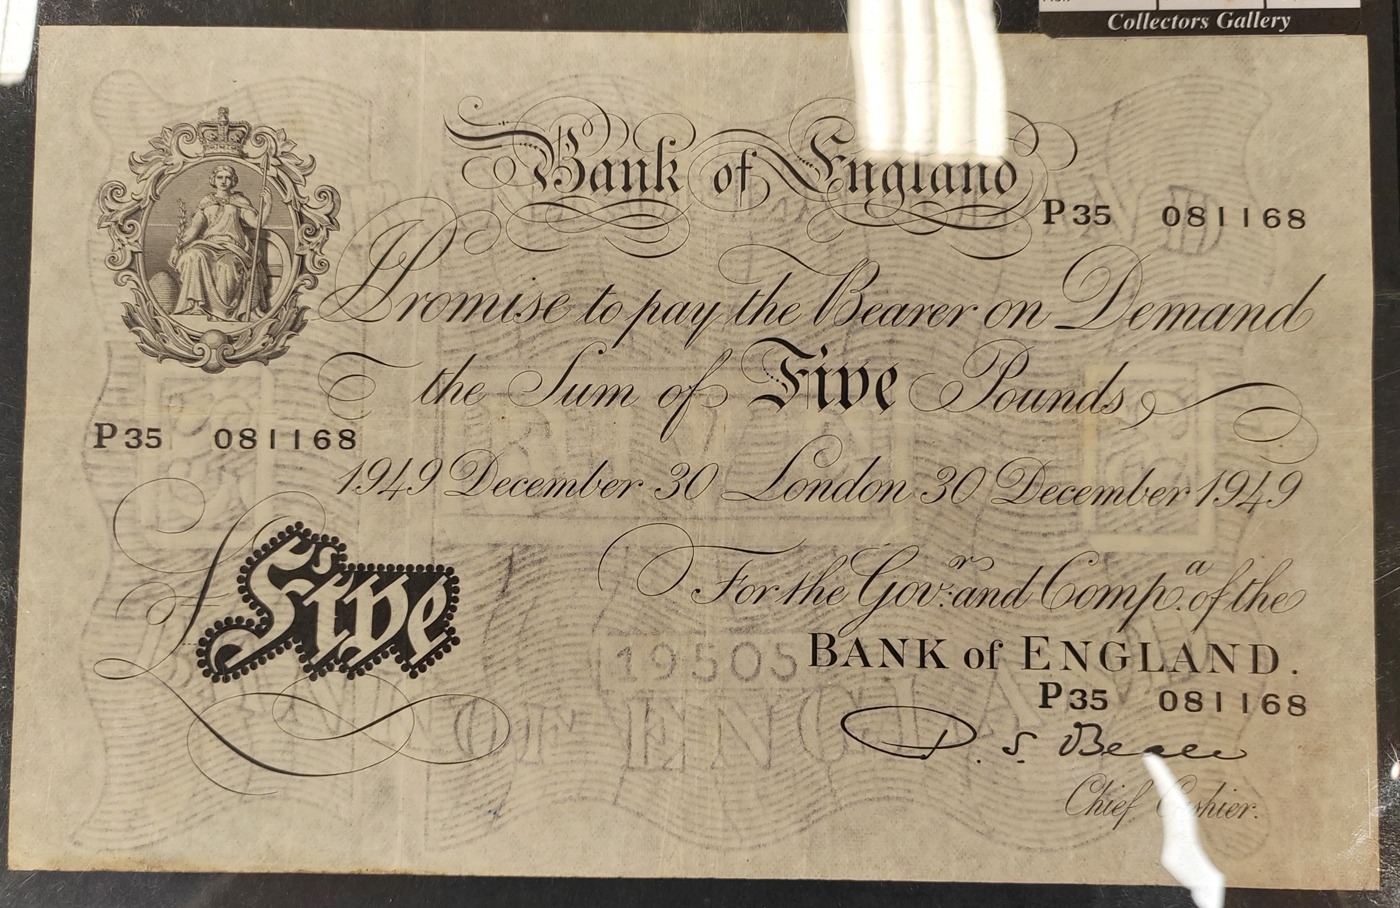 Collectors Gallery
Bank of England
P35 081168
I Promise to pay the Bearer on Demand
the Sum of Five Pounds
P35 081168
1949 December 30 London 30 December 1949
For the Govr. and Compa. of the
BANK of ENGLAND.
£Five
19505
P35 081168
P. S. Beale
Chief Cashier.
BANK OF ENGLAND